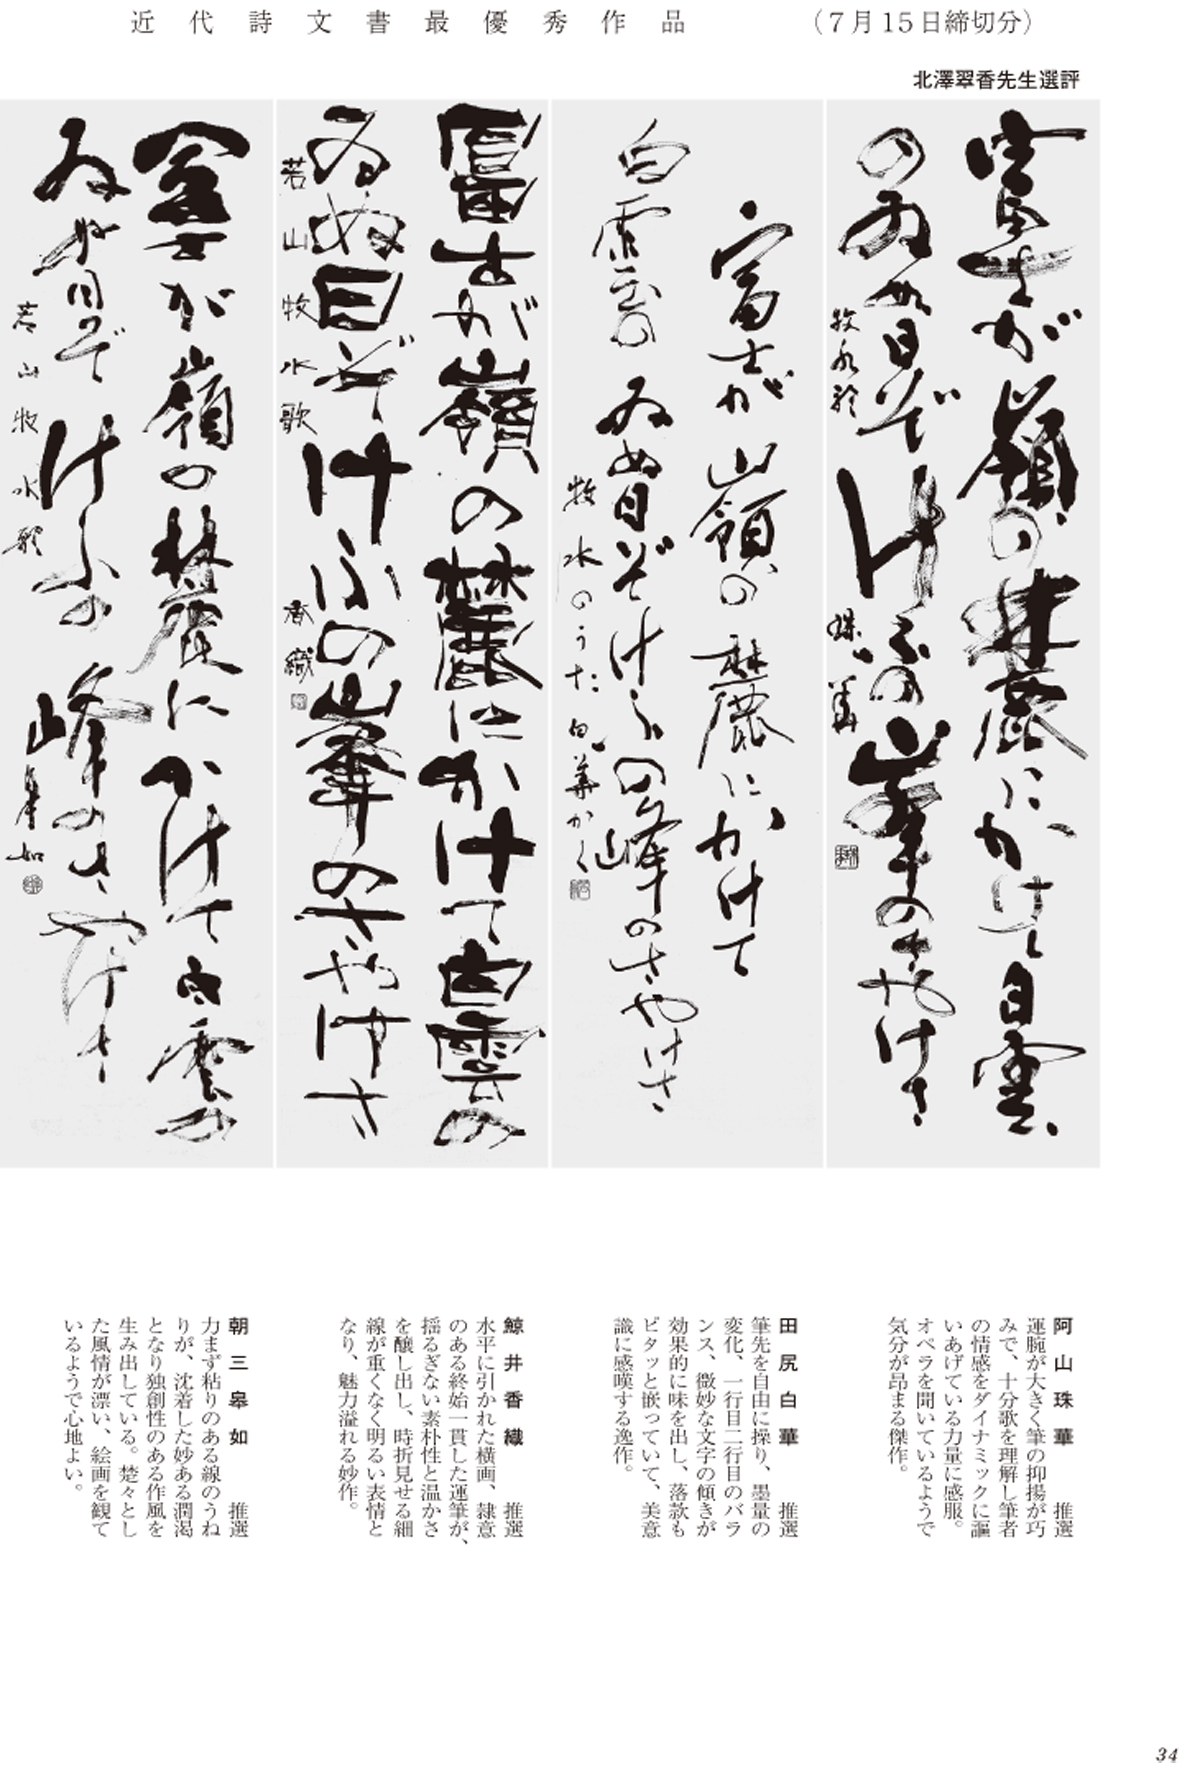 近代詩文書最優秀作品
（７月15日締切分）
北澤翠香先生選評
富士が嶺の麓にかけて白雲
のゐぬ日ぞけふの峯のさやけさ
牧水歌
珠華
富士が嶺の麓にかけて
白雲の ゐぬ日ぞけふの峰のさやけさ
牧水のうた 白華かく
富士が嶺の麓にかけて白雲の
ゐぬ日ぞけふの峯のさやけさ
若山牧水歌
香織
富士が嶺の麓にかけて白雲の
ゐぬ日ぞけふの峰のさやけさ
若山牧水歌
皋如
阿山珠華 推選
運腕が大きく筆の抑揚が巧
みで、十分歌を理解し筆者
の情感をダイナミックに謳
いあげている力量に感服。
オペラを聞いているようで
気分が昂まる傑作。
田尻白華 推選
筆先を自由に操り、墨量の
変化、一行目二行目のバラ
ンス、微妙な文字の傾きが
効果的に味を出し、落款も
ピタッと嵌っていて、美意
識に感嘆する逸作。
鯨井香織 推選
水平に引かれた横画、隷意
のある終始一貫した運筆が、
揺るぎない素朴性と温かさ
を醸し出し、時折見せる細
線が重くなく明るい表情と
なり、魅力溢れる妙作。
朝三皋如 推選
力まず粘りのある線のうね
りが、沈着した妙ある潤渇
となり独創性のある作風を
生み出している。楚々とし
た風情が漂い、絵画を観て
いるようで心地よい。
34